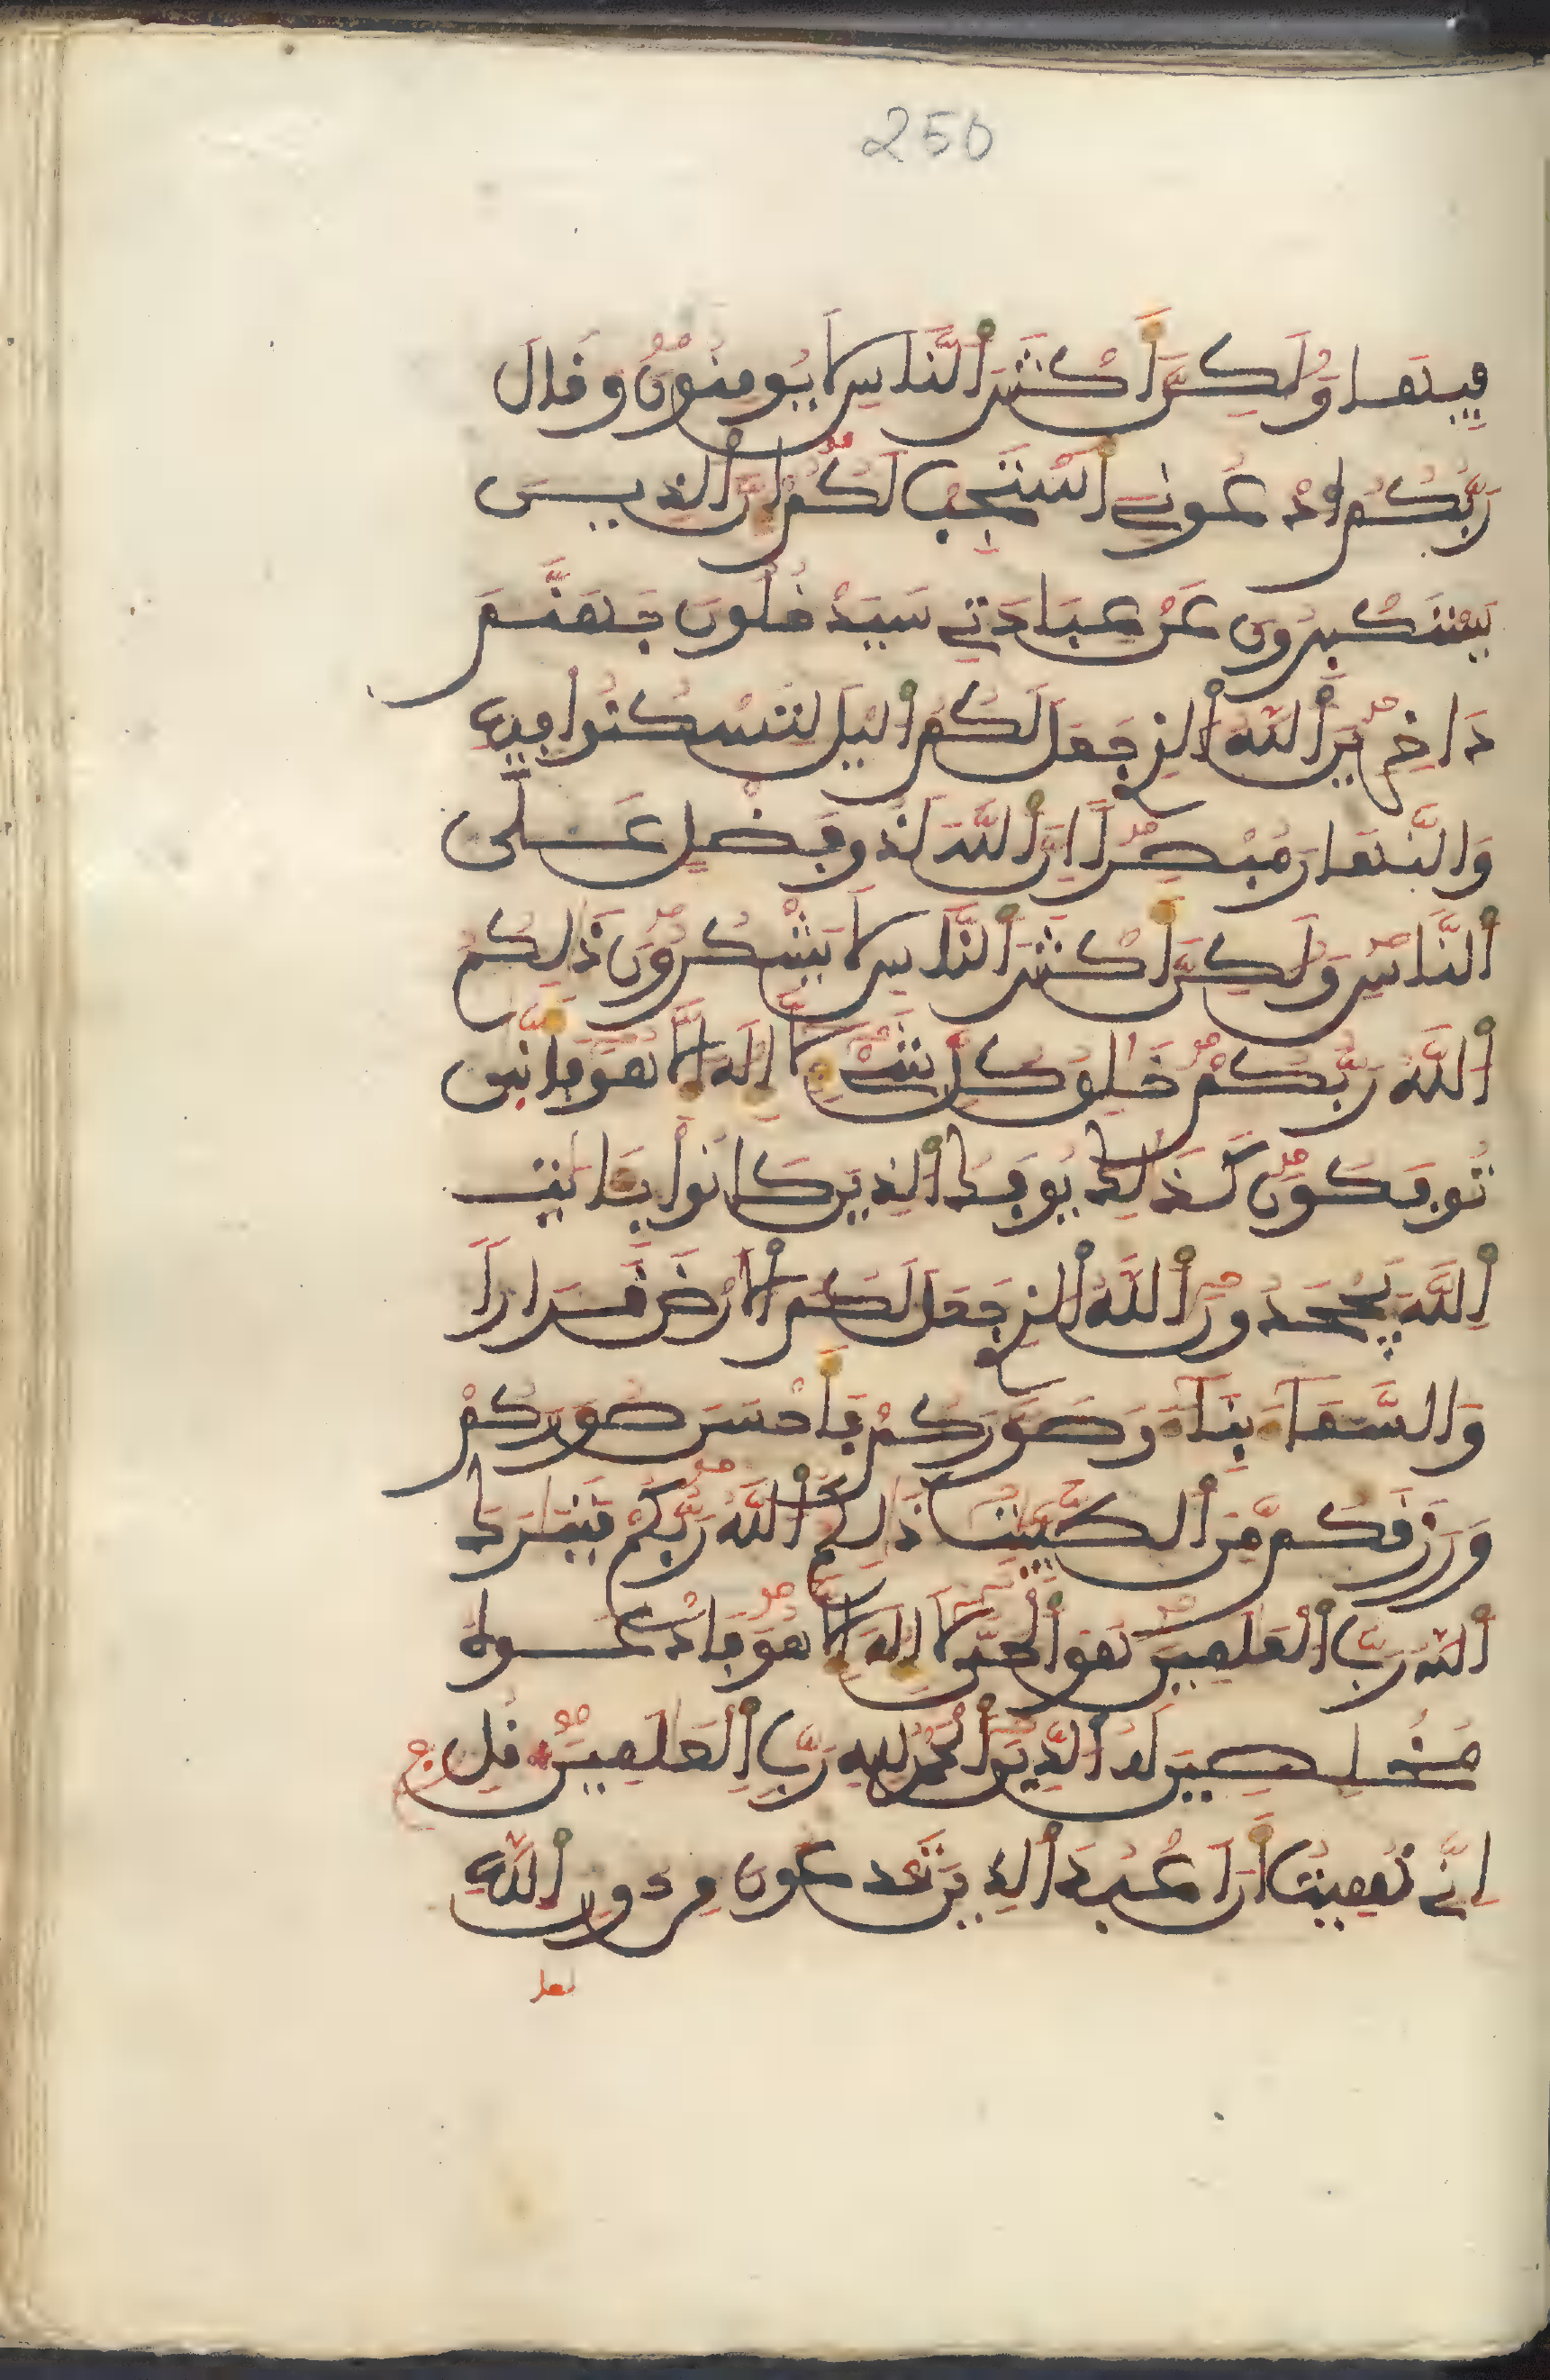 250
فِيهَا وَلَكِنَّ أَكْثَرَ اَلنَّاسِ لَا يُومِنُونَ وَقَالَ
رَبُّكُمُ اُدْعُونِے أَسْتَجِبْ لَكُمْ إِنَّ اَلذِينَ
يَسْتَكْبِرُونَ عَنْ عِبَادَتِے سَيَدْخُلُونَ جَهَنَّمَ
دَاخِرِينَ اَللَّهُ اَلذِے جَعَلَ لَكُمُ اُليْلَ لِتَسْكُنُوا فِيهِ
وَالنَّهَارَ مُبْصِراً اِنَّ اَللَّهَ لَذُو فَضْلٍ عَلَى
اَلنَّاسِ وَلَكِنَّ أَكْثَرَ اَلنَّاسِ لَا يَشْكُرُونَ ذَلِكُمُ
اُللَّهُ رَبُّكُمْ خَلِقُ كُلِّ شَےْءٍ لَّا إِلَهَ إِلَّا هُوَ فَأَنَّى
تُوفَكُونَ كَذَلِكَ يُوفَكُ اُلذِينَ كَانُوا بِـَٔايَتِ
اِللَّهِ يَجْحَدُونَ اَللَّهُ اُلذِے جَعَلَ لَكُمُ اُلَارْضَ قَرَاراً
وَالسَّمَاءَ بِنَاءً وَصَوَّرَكُمْ فَأَحْسَنَ صُوَرَكُمْ
وَرَزَقَكُم مِّنَ اَلطَّيِّبَتِ ذَلِكُمُ اُللَّهُ رَبُّكُمْ فَتَبَرَكَ
اَللَّهُ رَبُّ اُلْعَلَمِينَ هُوَ اَلْحَيُّ لَا إِلَهَ إِلَّا هُوَ فَادْعُوهُ
مُخْلِصِينَ لَهُ اُلدِّينَ اَلْحَمْدُ لِلهِ رَبِّ اِلْعَلَمِينَ قُلِ
اِنِّے نُهِيتُ أَنَ اَعْبُدَ اَلذِينَ تَدْعُونَ مِن دُونِ اِللَّهِ
لما